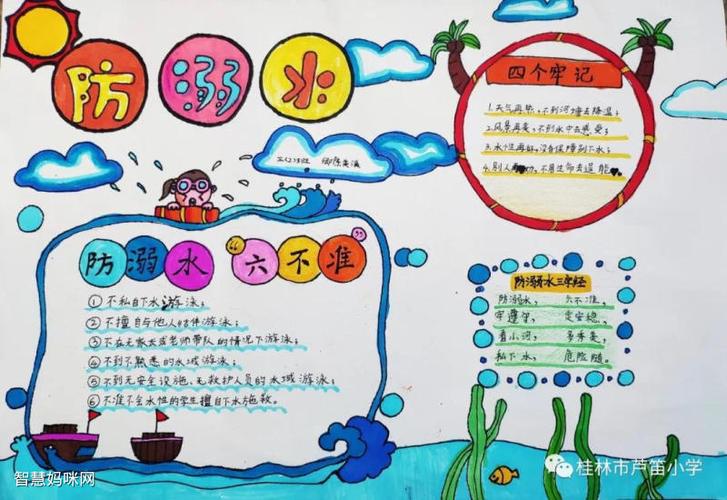 防溺水
四个牢记
1.天气再热,不到河塘去降温;
2.风景再美,不到水中去感受;
3.水性再好,没有保障别下水;
4.别人再劝,不用生命去逞能。
防溺水"六不准"
①不私自下水游泳;
②不擅自与他人结伴游泳;
③不在无家长或老师带队的情况下游泳;
④不到不熟悉的水域游泳;
⑤不到无安全设施、无救护人员的水域游泳;
⑥不准不会水性的学生擅自下水施救。
防溺水三字经
防溺水, 六不准,
牢遵守, 定安稳。
看小河, 多秀美,
私下水, 危险随。
智慧妈咪网
桂林市芦笛小学